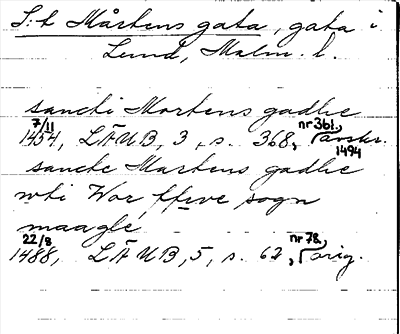 S:t Mårtens gata, gata i
Lund, Malm. l.
sancti Mortens gadhe
7/11 1454, LÄUB, 3, s. 368, nr 361, avskr. 1494
sancte Martens gadhe
wti Wor ffrve sogn
maagle
22/8 1488, LÄUB, 5, s. 62, nr 78, orig.